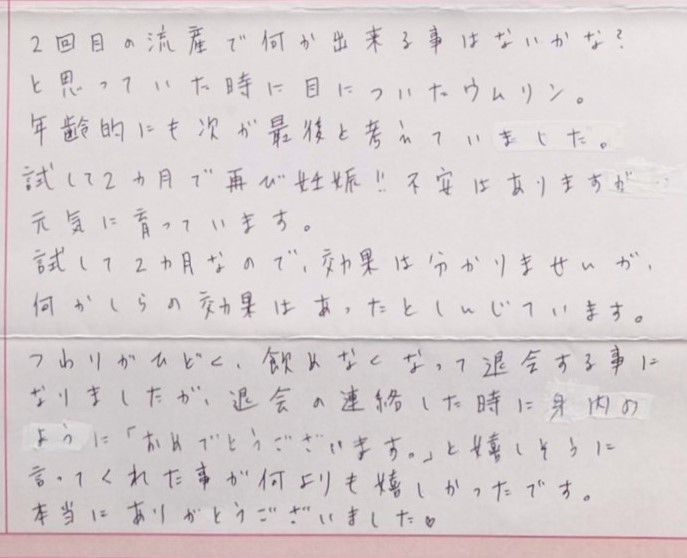 2回目の流産で何か出来る事はないかな?
と思っていた時に目についたウムリン。
年齢的にも次が最後と考えていました。
試して2カ月で再び妊娠!! 不安はありますが…
元気に育っています。
試して2カ月なので、効果は分かりませんが、
何かしらの効果はあったとしんじています。
つわりがひどく、飲めなくなって退会する事に
なりましたが、退会の連絡した時に身内の
ように「おめでとうございます。」と嬉しそうに
言ってくれた事が何よりも嬉しかったです。
本当にありがとうございました♡